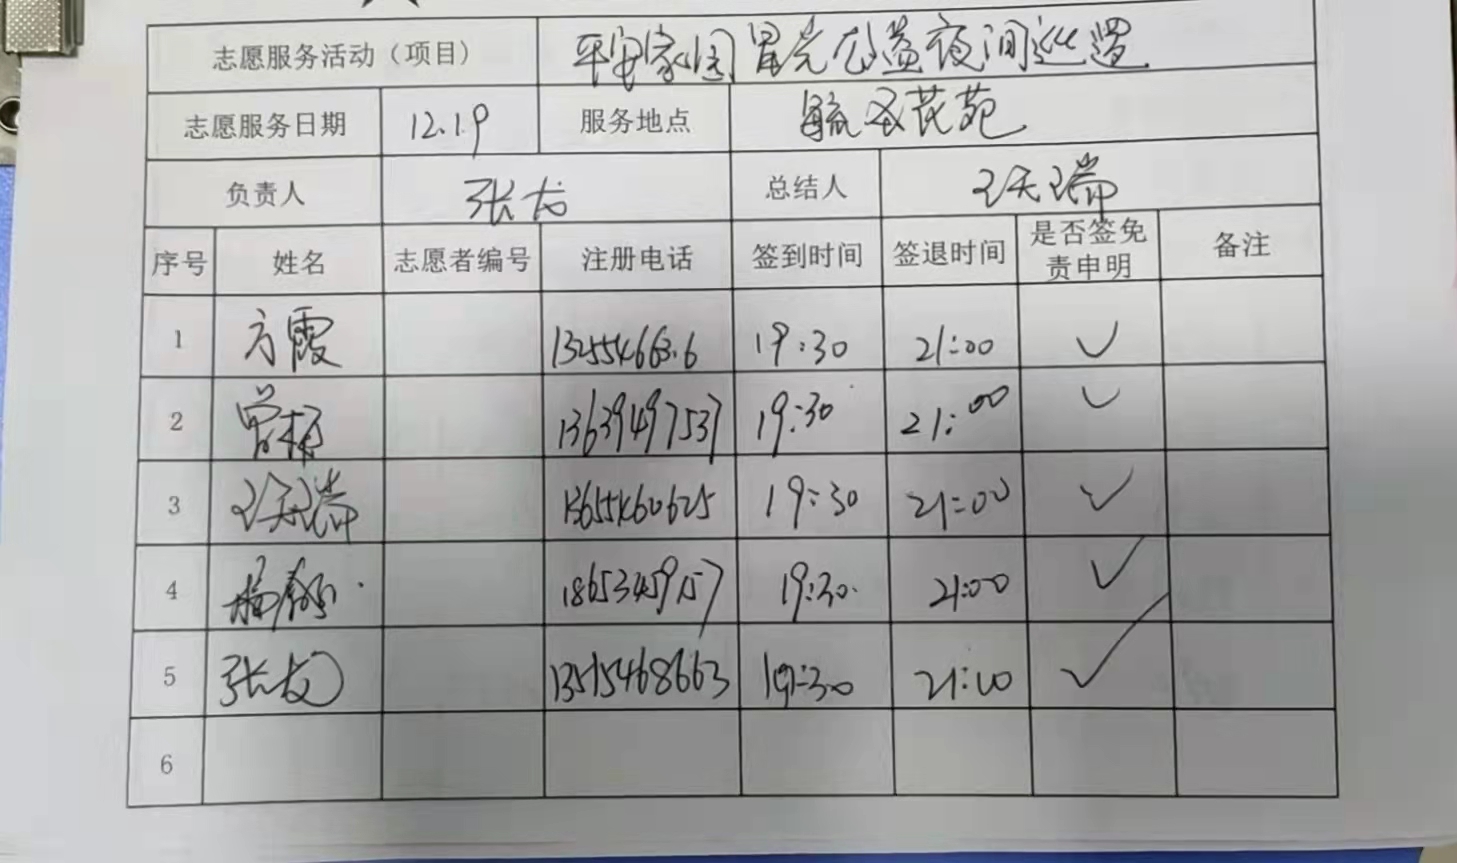 志愿服务活动（项目） 平安家园星光公益夜间巡逻
志愿服务日期 12.19 服务地点 毓圣花苑
负责人 张龙 总结人 王天瑞
序号 姓名 志愿者编号 注册电话 签到时间 签退时间 是否签免责申明 备注
1 方霞 19:30 21:00 ✓
2 曾 13639497537 19:30 21:00 ✓
3 王天瑞 13655460625 19:30 21:00 ✓
4 杨 18653459157 19:30 21:00 ✓
5 张龙 13515468663 19:30 21:00 ✓
6